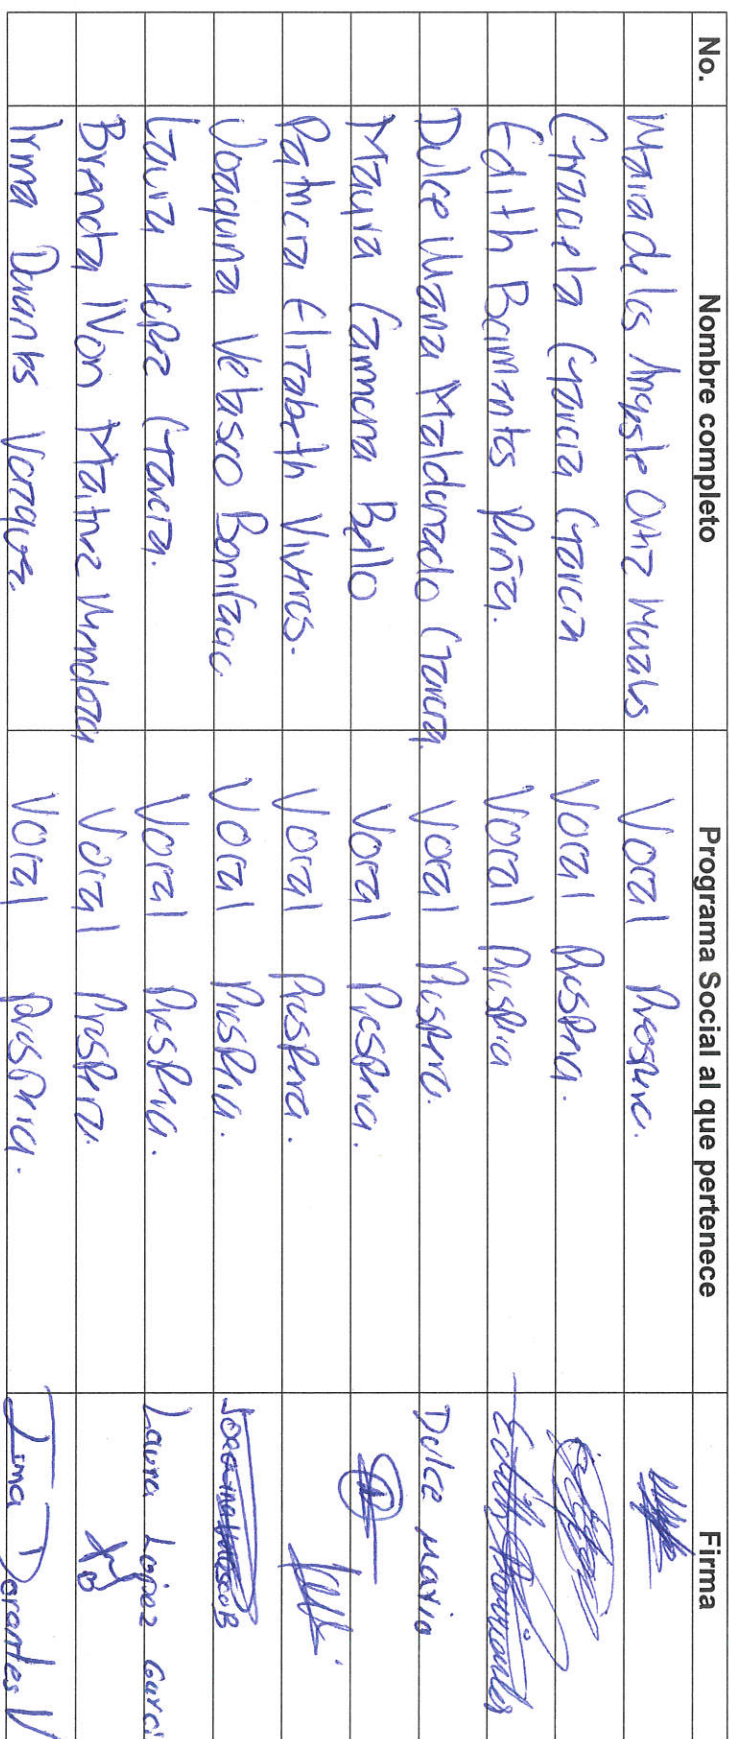 No. Nombre completo Programa Social al que pertenece Firma
Maria de los Angeles Ortiz Morales Vocal Prospera.
Graciela Garcia Garcia Vocal Prospera.
Edith Barrientos Piña. Vocal Prospera Edith Barrientos
Dulce Maria Maldonado Garcia. Vocal Prospera. Dulce Maria
Mayra Bello Vocal Prospera.
Patricia Elizabeth Viveros. Vocal Prospera.
Joaquina Velasco Bonifacio Vocal Prospera. Joaquina Velasco B
Laura Lopez Garcia. Vocal Prospera. Laura Lopez Garci
Brenda Ivon Mendoza Vocal Prospera.
Irma Dorantes Vazquez. Vocal Prospera. Irma Dorantes V